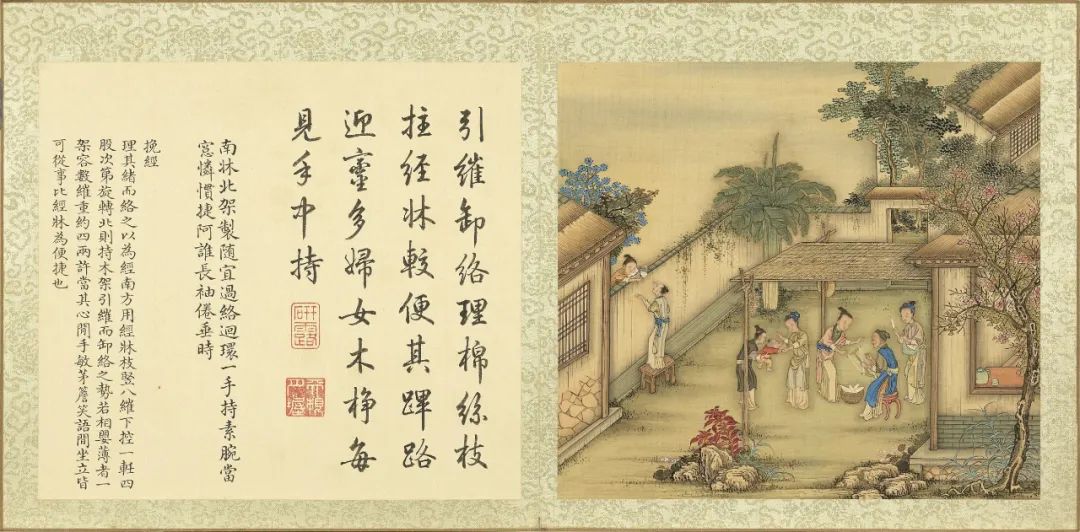 引繀卸絡理棉絲枝
拄経牀較便其蹕路
迎鑾多婦女木棦每
見手中持
南牀北架製隨宜過絡迴環一手持素腕當
窓憐慣捷阿誰長袖倦垂時
挽經
理其緒而絡之以為經南方用經牀枝竪八繀下控一軠四
股次第旋轉北則持木架引繀而卸絡之勢若相嬰薄者一
架容數繀重約四兩許當其心閒手敏茅簷笑語間坐立皆
可從事比經牀為便捷也